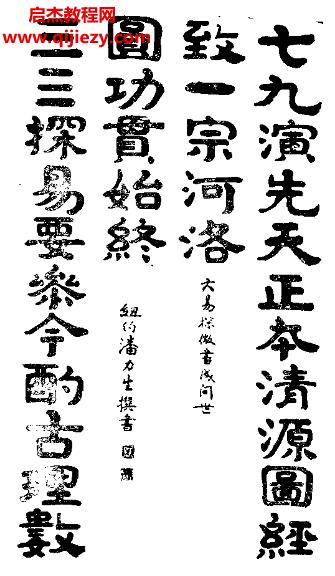 启杰教程网
www.qijiezy.com
七九演先天正本清源圖經
致一宗河洛
大易探微書成问世
二三探易要參今酌古理數
圓功貫始終
紐約潘力生撰書